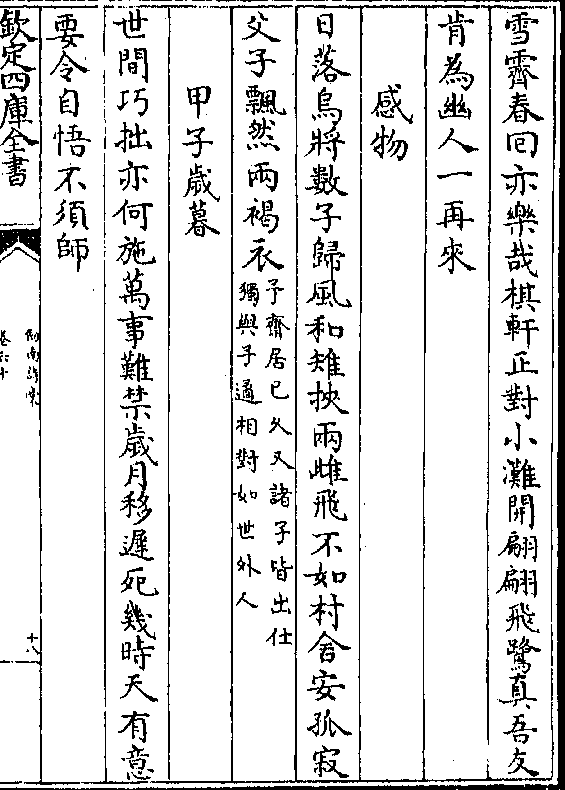 雪霽春回亦樂哉棋軒正對小灘開翩翩飛鷺真吾友
肯為幽人一再來
感物
日落烏將數子歸風和雉挾兩雌飛不如村舍安孤寂
父子飄然兩褐衣予齋居已久又諸子皆出仕
獨與子遹相對如世外人
甲子歲暮
世間巧拙亦何施萬事難禁歲月移遲死幾時天有意
要令自悟不須師
欽定四庫全書
劍南詩稾
卷六十
十八